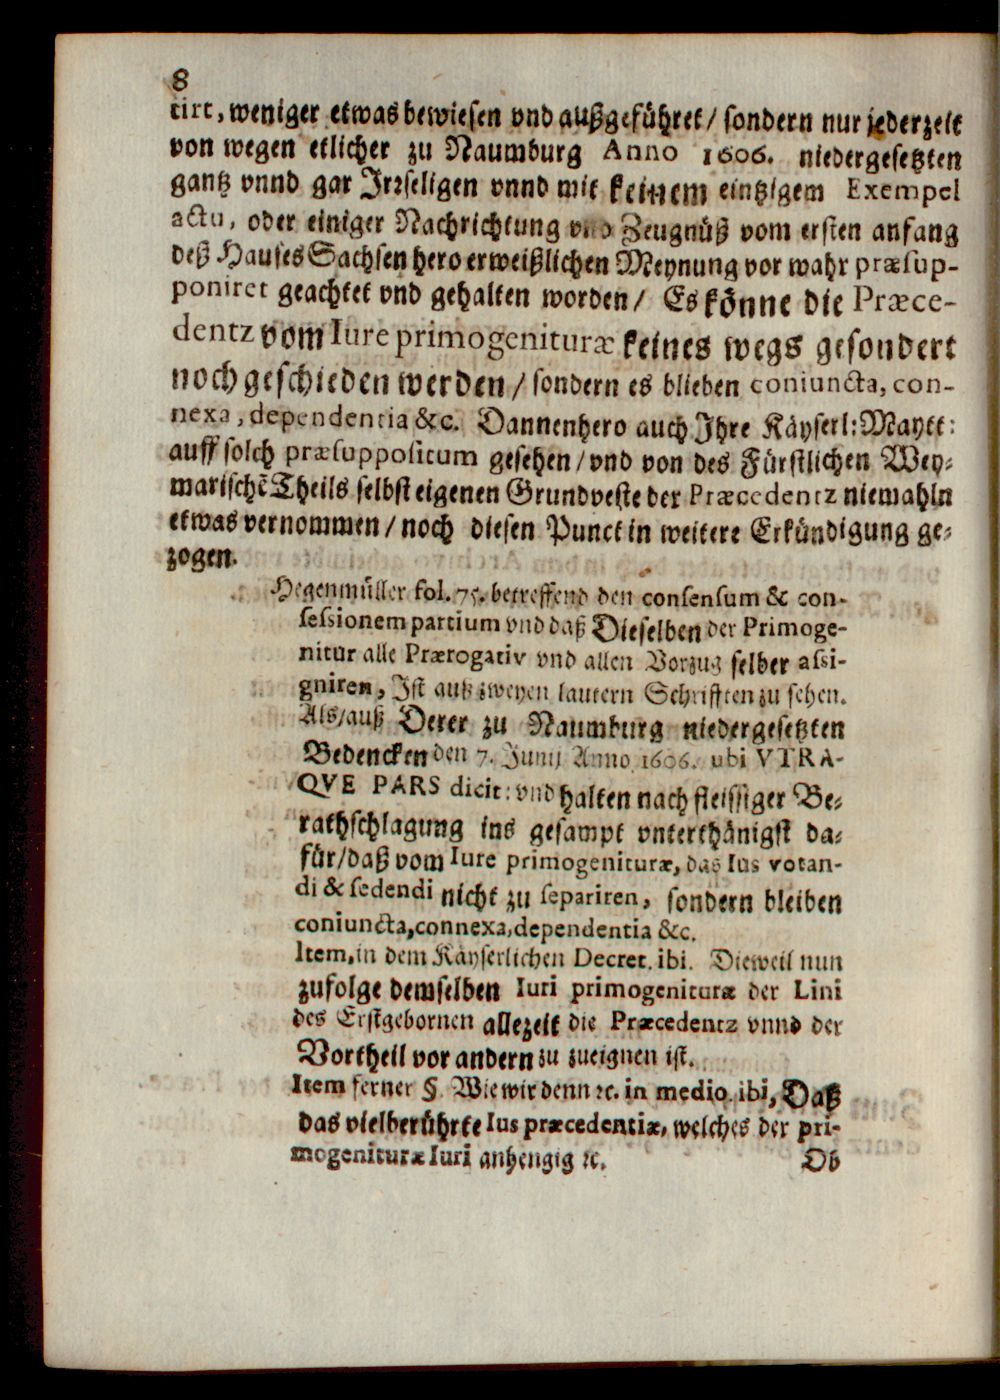 8
tirt, weniger etwas bewiesen vnd außgeführet / sondern nur jederzeit
von wegen etlicher zu Naumburg Anno 1606. niedergesetzten
gantz vnnd gar Irrseligen vnnd mit keinem eintzigem Exempel
actu, oder einiger Nachrichtung vnd Zeugnüß vom ersten anfang
deß Hauses Sachsen hero erweißlichen Meynung vor wahr præsup-
poniret geachtet vnd gehalten worden / Es könne die Præce-
dentz vom Iure primogenituræ keines wegs gesondert
noch geschieden werden / sondern es blieben coniuncta, con-
nexa, dependentia &c. Dannenhero auch Ihre Käyserl: Maytt:
auff solch præsuppositum gesehen / vnd von des Fürstlichen Wey-
marischē Theils selbst eigenen Grundveste der Præcedentz niemahln
etwas vernommen / noch diesen Punct in weitere Erkündigung ge-
zogen.
Hegenmüller fol. 75. betreffend den consensum & con-
sessionem partium vnd daß Dieselben der Primoge-
nitur alle Prærogativ vnd allen Vorzug selber assi-
gniren, Ist auß zweyen lautern Schrifften zu sehen.
Als / auß Derer zu Naumburg niedergesetzten
Bedencken den 7. Junij Anno 1606. ubi VTRA-
QVE PARS dicit: vnd halten nach fleissiger Be-
rathschlagung ins gesampt vnterthänigst da-
für / daß vom Iure primogenituræ, das Ius votan-
di & sedendi nicht zu separiren, sondern bleiben
coniuncta, connexa, dependentia &c.
Item, in dem Käyserlichen Decret. ibi. Dieweil nun
zufolge demselben Iuri primogenituræ der Lini
des Erstgebornen allezeit die Præcedentz vnnd der
Vortheil vor andern zu zueignen ist.
Item ferner §. Wie wir denn ꝛc. in medio. ibi, Daß
das vielberührte Ius præcedentiæ, welches der pri-
mogenituræ Iuri anhengig ꝛc.
Ob